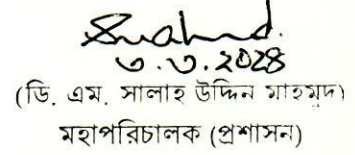 ৩.৩.২০২৪
(ডি. এম. সালাহ উদ্দিন মাহমুদ)
মহাপরিচালক (প্রশাসন)